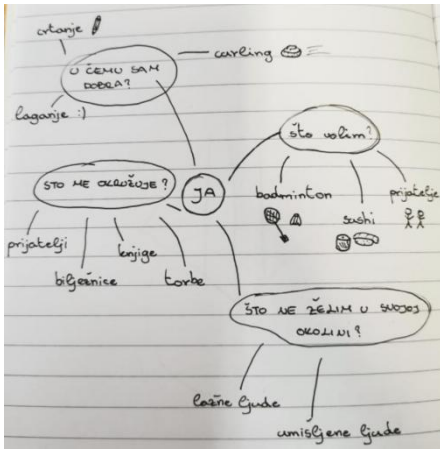 crtanje
U ČEMU SAM
DOBRA?
curling
laganje :)
što volim?
badminton
sushi
prijatelje
JA
ŠTO ME OKRUŽUJE?
prijatelji
bilježnice
knjige
torbe
ŠTO NE ŽELIM U SVOJOJ
OKOLINI?
lažne ljude
umišljene ljude